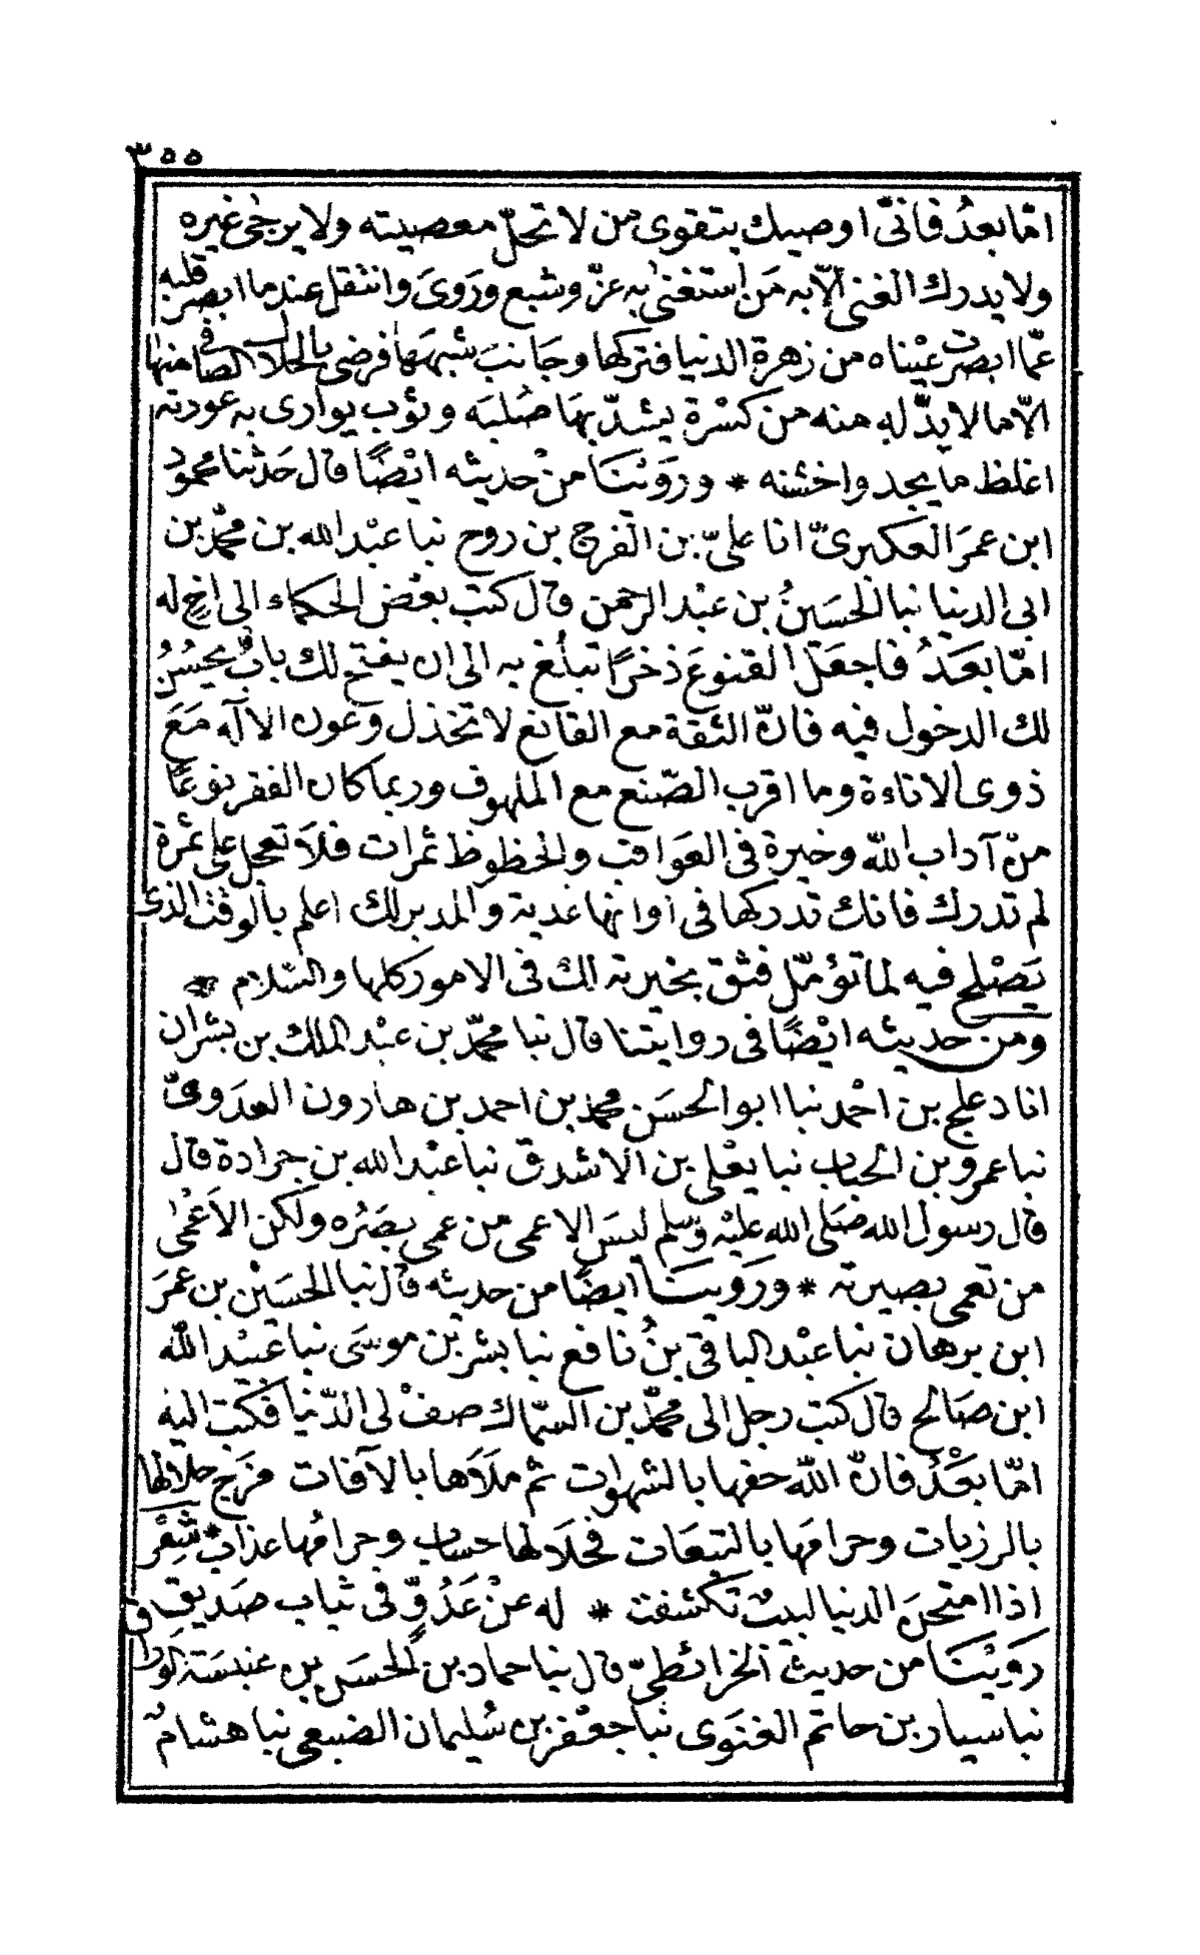 ٣٥٥
امّا بعدُ فانىّ اوصيك بتقوى من لا تحلّ معصيته ولا يرجى غيره
ولا يدرك الغنى الّا به مَن استغنى به عزّ وشبع ورَوىَ وانتقل عند ما ابصر قلبه
عمّا ابصرت عيْناه من زهرة الدنيا فتركها وجانبَ شبهَهَا فرضى بالحلال الصافى منها
الّا ما لا بدّ له منه من كسْرة يشدّ بهَا صُلبَه وثوب يوارى به عورته
اغلظ ما يجد واخشنه * ورَوَيْنَا منْ حديثه ايْضًا قال حَدثنا محمود
ابن عمرَ العكبرىّ انا علىّ بن الفرج بن روح نبا عبْد الله بن محمّد بن
ابى الدنيا نبا الحسَينُ بن عبْد الرحمن قال كتب بعْض الحكماء الى اخٍ له
امّا بعَدُ فاجعَل القنوعَ ذخرًا تبلُغ به الى ان يفتح لك بابٌ يحسُنُ
لك الدخول فيه فانّ الثقة مع القانع لا تخذل وعون الاله مَعَ
ذوى الاناءة وما اقرب الصّنع مع الملهوف وربما كان الفقر نوعًا
منْ آداب الله وخيرة فى العواقب والحظوظ ثمرات فلا تعجل على ثمرة
لم تدرك فانك تدركها فى اوانها عذبة والمدبر لك اعلم بالوقت الذى
يَصْلح فيه لما تؤمّل فثق بخيرته لك فى الامور كلها والسّلام *
ومن حديثه ايْضًا فى روايتنا قال نبا محمّد بن عبْد الملك بن بشران
انا دعلج بن احْمد نبا ابو الحسَن محمد بن احمد بن هارون العدَوىّ
نبا عمرو بن الحباب نبا يعْلى بن الاشدق نبا عبْد الله بن جرادة قال
قال رسول الله صَلى الله عليْه وسلم ليسَ الاعمى من عمى بصَرُه ولكن الاَعْمٰى
من تعمى بصيرته * ورَوَينَا ايضًا من حديثه قال نبا الحسَيْن بن عمرَ
ابن برهان نبا عبْد الباقى بنُ نافع نبا بشر بن موسَى نبا عبيْد الله
ابن صَالح قال كتب رجل الى محمّد بن السمّاك صفْ لى الدّنيا فكتب اليْه
امّا بعْدُ فانّ الله حفها بالشهوات ثم ملاَها بالآفات مزَج حلالها
بالرزيات وحرامَها بالتبعَات فحلالها حساب وحرامُها عذاب * شعْر
اذا امتحنَ الدنيا لبيبٌ تكشفت * له عنْ عَدُوٍّ فى ثياب صَديقِ
رَوَيْنَا من حديث الخرائطىّ قال نبا حماد بن الحسَن بن عنبسَة الوراق
نبا سيار بن حاتم الغنَوى نبا جعْفر بن سُليمان الضبعى نبا هشامٌ